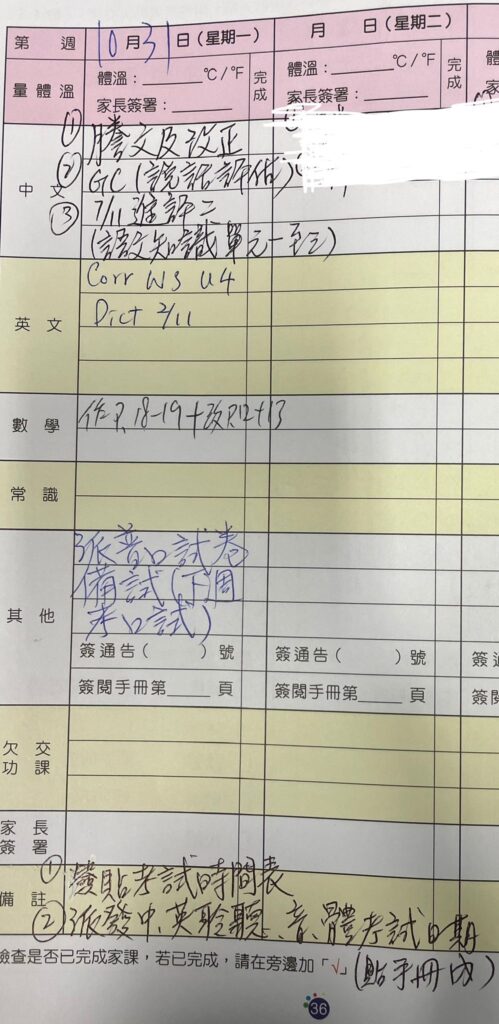 第　週 10月31日（星期一） 月　日（星期二）
量體溫 體溫：______ °C/°F 完成 體溫：______ °C/°F 完成
家長簽署：______ 家長簽署：______
中文 ① 謄文及改正
② GC（說話評估）
③ 7/11 進評二
（語文知識單元一至三）
英文 Corr WS U4
Dict 2/11
數學 作P.18-19+改P.12+13
常識
其他 派普口試卷
備試（下周
考口試）
簽通告（　）號 簽通告（　）號 簽通
簽閱手冊第____頁 簽閱手冊第____頁 簽閱
欠交功課
家長簽署
備註 ① 簽貼考試時間表
② 派發中、英聆聽、音、體考試日期
（貼手冊內）
檢查是否已完成家課，若已完成，請在旁邊加「√」
36